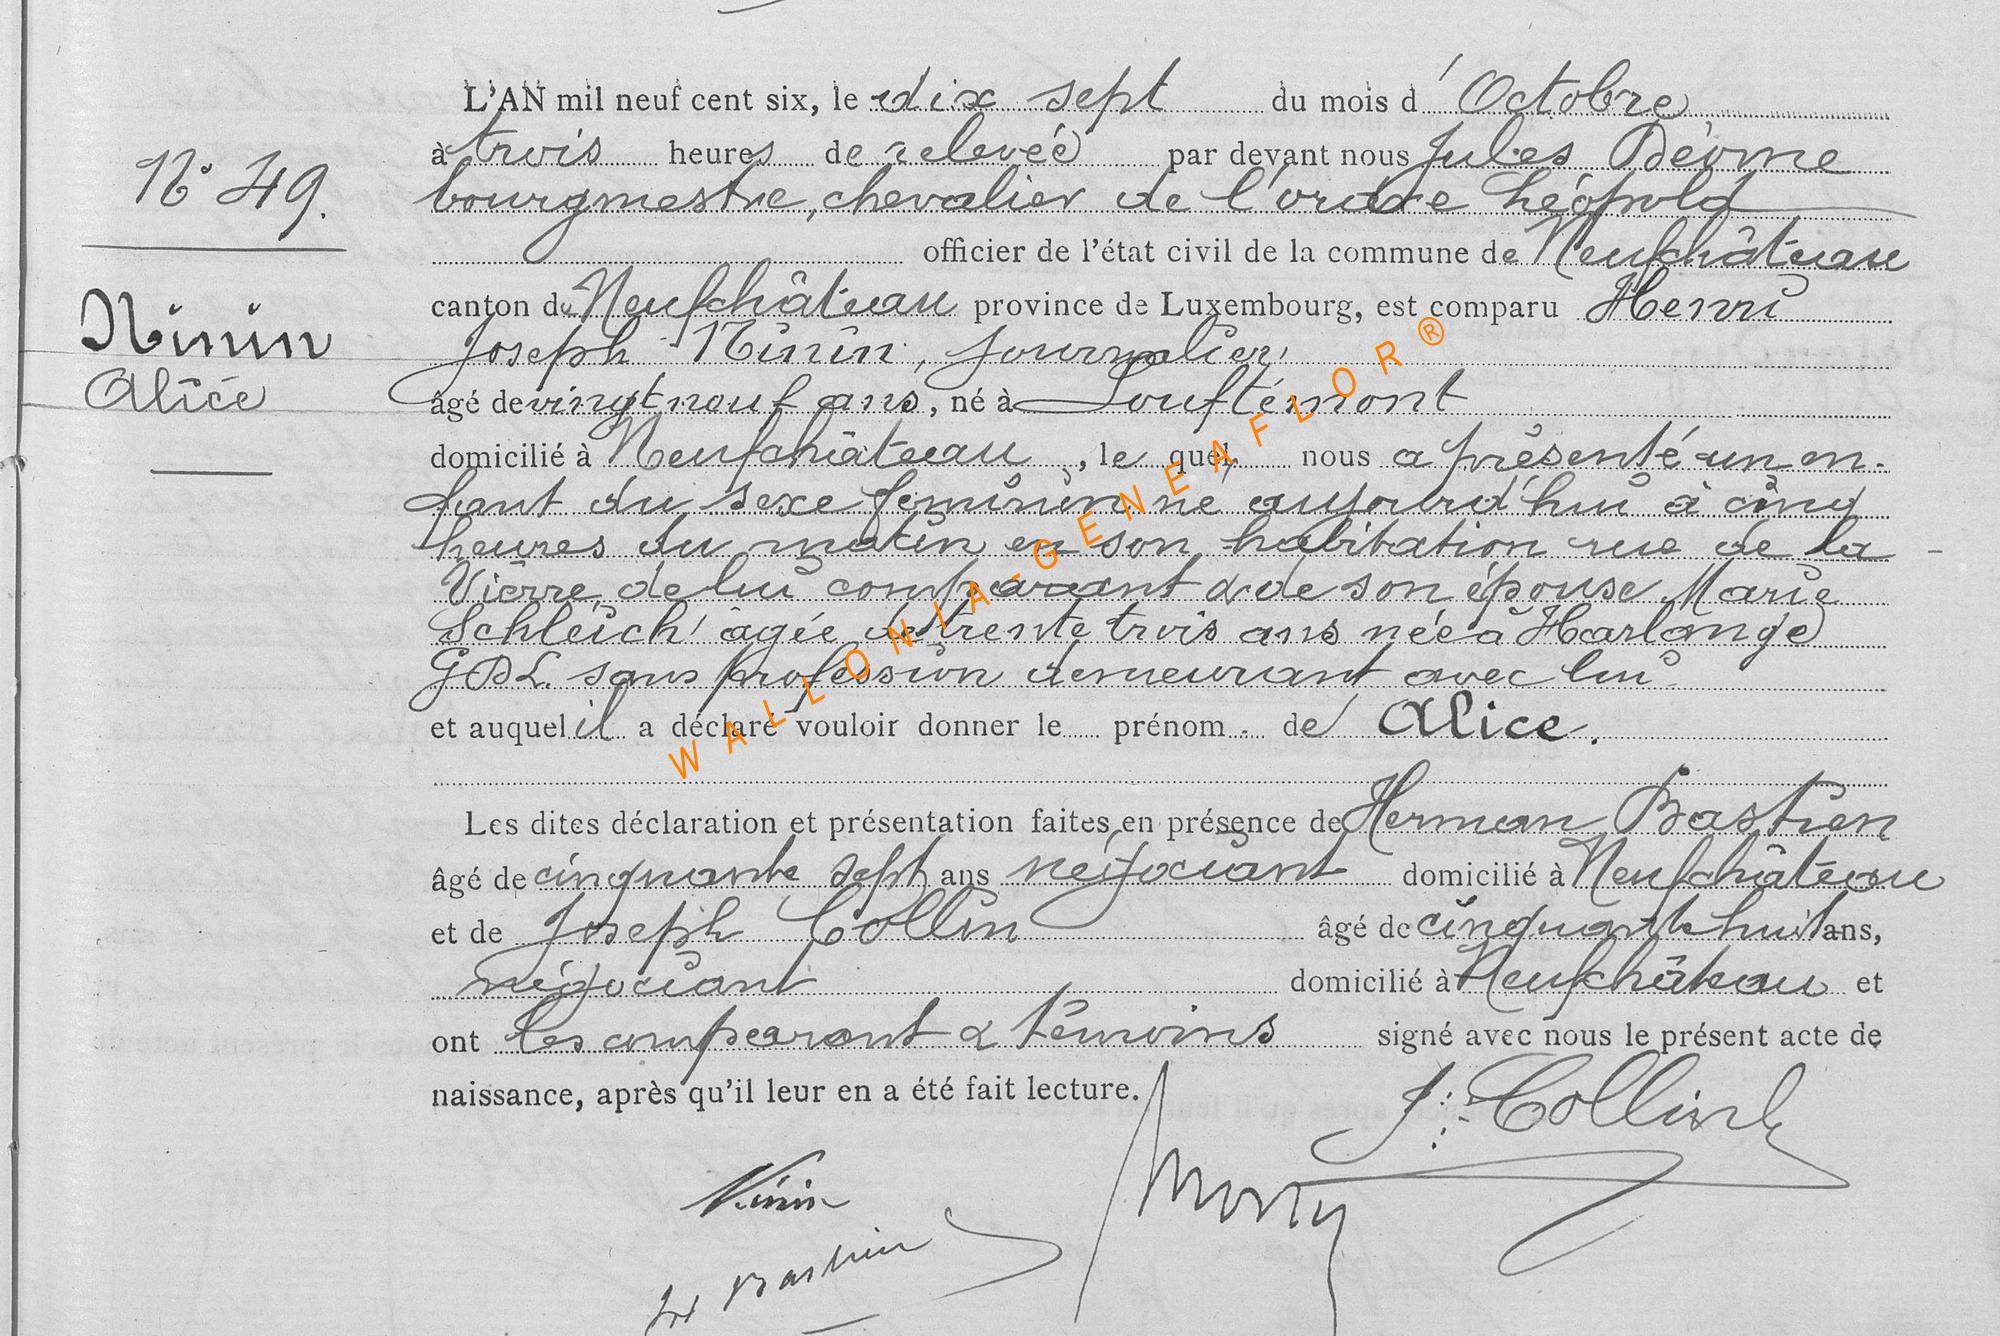 L'AN mil neuf cent six, le dix sept du mois d'Octobre
à trois heures de relevée par devant nous Jules
N° 49. bourgmestre, chevalier de l'ordre Léopold
officier de l'état civil de la commune de Neufchâteau
canton de Neufchâteau province de Luxembourg, est comparu Henri
Ninin Joseph Ninin, journalier,
Alice âgé de vingt neuf ans, né à Louftémont
domicilié à Neufchâteau, le quel nous a présenté un en-
fant du sexe féminin né aujourd'hui à cinq
heures du matin en son habitation rue de la
Vierre, de lui comparant & de son épouse Marie
Schleich âgée de trente trois ans née à Harlange
GDL. sans profession demeurant avec lui
et auquel il a déclaré vouloir donner le prénom de Alice.
Les dites déclaration et présentation faites en présence de Herman Bastien
âgé de cinquante sept ans négociant domicilié à Neufchâteau
et de Joseph Collin âgé de cinquante huit ans,
négociant domicilié à Neufchâteau et
ont les comparant & témoins signé avec nous le présent acte de
naissance, après qu'il leur en a été fait lecture.
J. Collin
Ninin
Bastien
WALLONIA-GENEAFLOR®